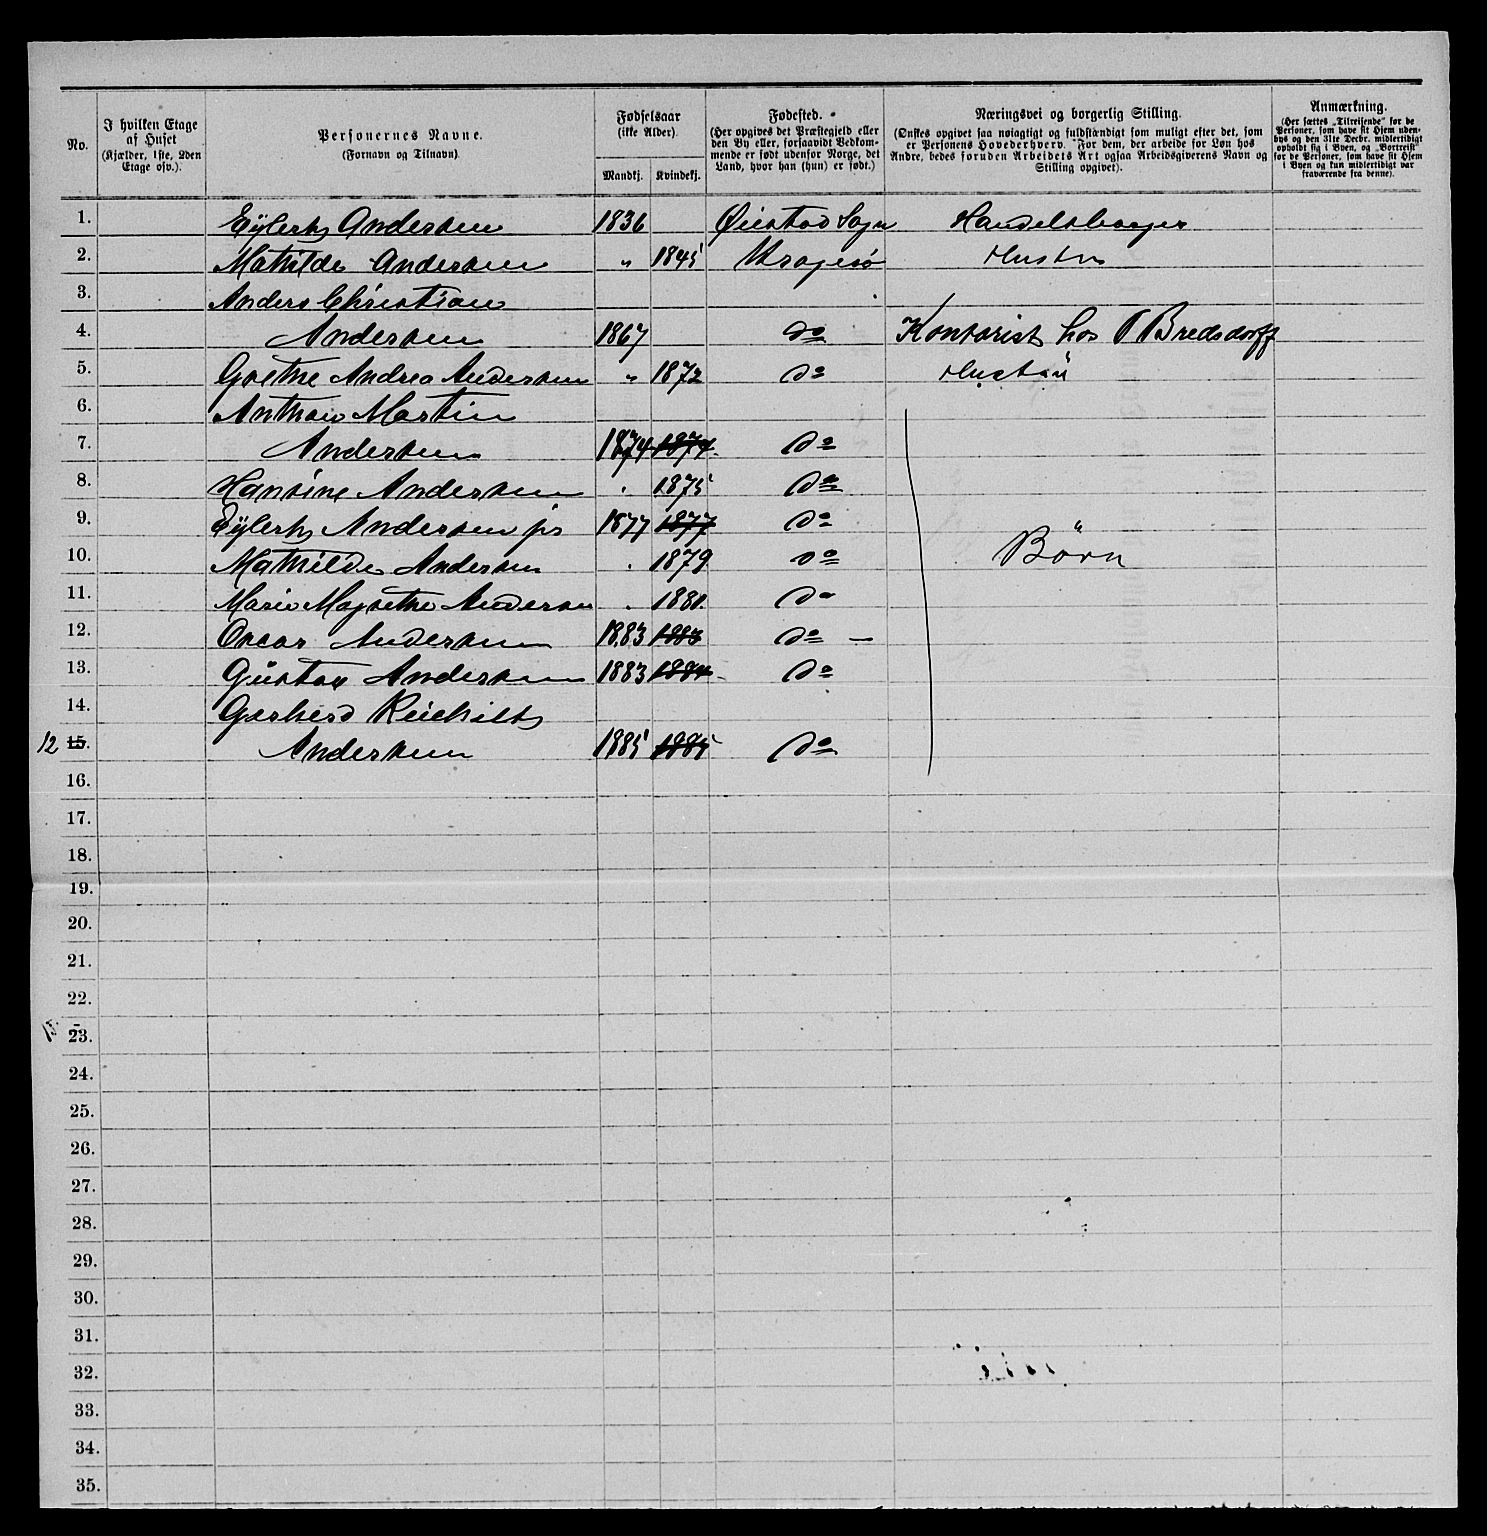 No.
I hvilken Etage
af Huset
(Kjælder, 1ste, 2den
Etage osv.).
Personernes Navne.
(Fornavn og Tilnavn).
Fødselsaar
(ikke Alder).
Mandkj. Kvindekj.
Fødested.
(Her opgives det Præstegjeld eller
den By eller, forsaavidt Vedkom-
mende er født udenfor Norge, det
Land, hvor han (hun) er født.)
Næringsvei og borgerlig Stilling.
(Ønskes opgivet saa nøiagtigt og fuldstændigt som muligt efter det, som
er Personens Hovederhverv. For dem, der arbeide for Løn hos
Andre, bedes foruden Arbeidets Art ogsaa Arbeidsgiverens Navn og
Stilling opgivet).
Anmærkning.
(Her sættes „Tilreisende" for de
Personer, som have sit Hjem uden-
bys og den 31te Decbr. midlertidigt
opholdt sig i Byen, og „Bortreist"
for de Personer, som have sit Hjem
i Byen og kun midlertidigt var
fraværende fra denne).
1. Eÿlerts Andersen 1836 Øiestad Sogn Handelsborger
2. Mathilde Andersen „ 1845 Kragerø Hustru
3. Anders Christian
4. Andersen 1867 do Kontorist hos P Bredsdorff
5. Grethe Andrea Andersen „ 1872 do
6. Anthon Martin
7. Andersen 1874 1874. do
8. Hansine Andersen . 1875 do
9. Eÿlerts Andersen jr 1877 1877 do
10. Mathilde Andersen . 1879 do Børn
11. Marie Magrethe Andersen . 1881. do
12. Oscar Andersen 1883 1883 do —
13. Gustav Andersen 1883 1884 do
14. Gerhard
12 15. Andersen 1885 1885 do
16.
17.
18.
19.
20.
21.
22.
23.
24.
25.
26.
27.
28.
29.
30.
31.
32.
33.
34.
35.